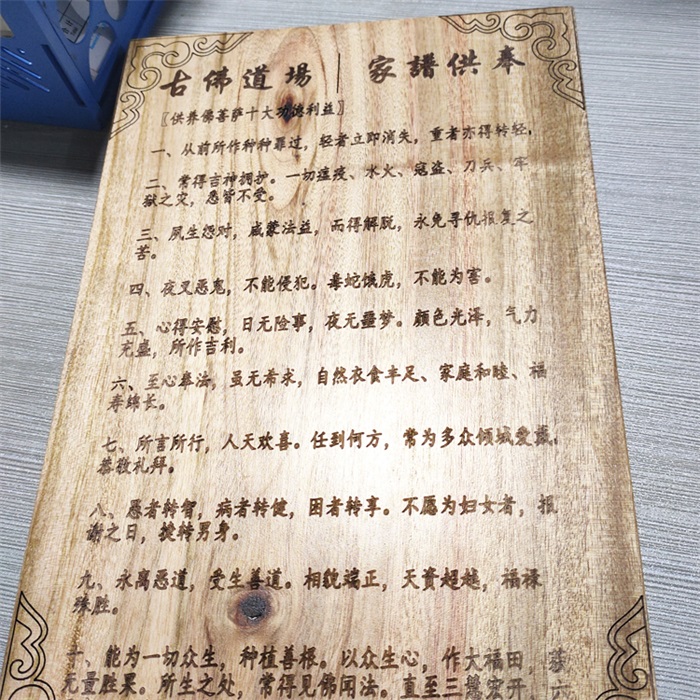 古佛道場｜家譜供奉
〖供养佛菩萨十大功德利益〗
一、从前所作种种罪过，轻者立即消失，重者亦得转轻，
二、常得吉神拥护。一切瘟疫、水火、寇盗、刀兵、牢
狱之灾，悉皆不受。
三、夙生怨对，咸蒙法益，而得解脱，永免寻仇报复之
苦。
四、夜叉恶鬼，不能侵犯。毒蛇饿虎，不能为害。
五、心得安慰，日无险事，夜无噩梦。颜色光泽，气力
充盛，所作吉利。
六、至心奉法，虽无希求，自然衣食丰足、家庭和睦、福
寿绵长。
七、所言所行，人天欢喜。任到何方，常为多众倾城爱戴，
恭敬礼拜。
八、愚者转智，病者转健，困者转享。不愿为妇女者，报
谢之日，捷转男身。
九、永离恶道，受生善道。相貌端正，天资超越，福禄
殊胜。
十、能为一切众生，种植善根。以众生心，作大福田，恭
无量胜果。所生之处，常得见佛闻法。直至三慧宏开，六